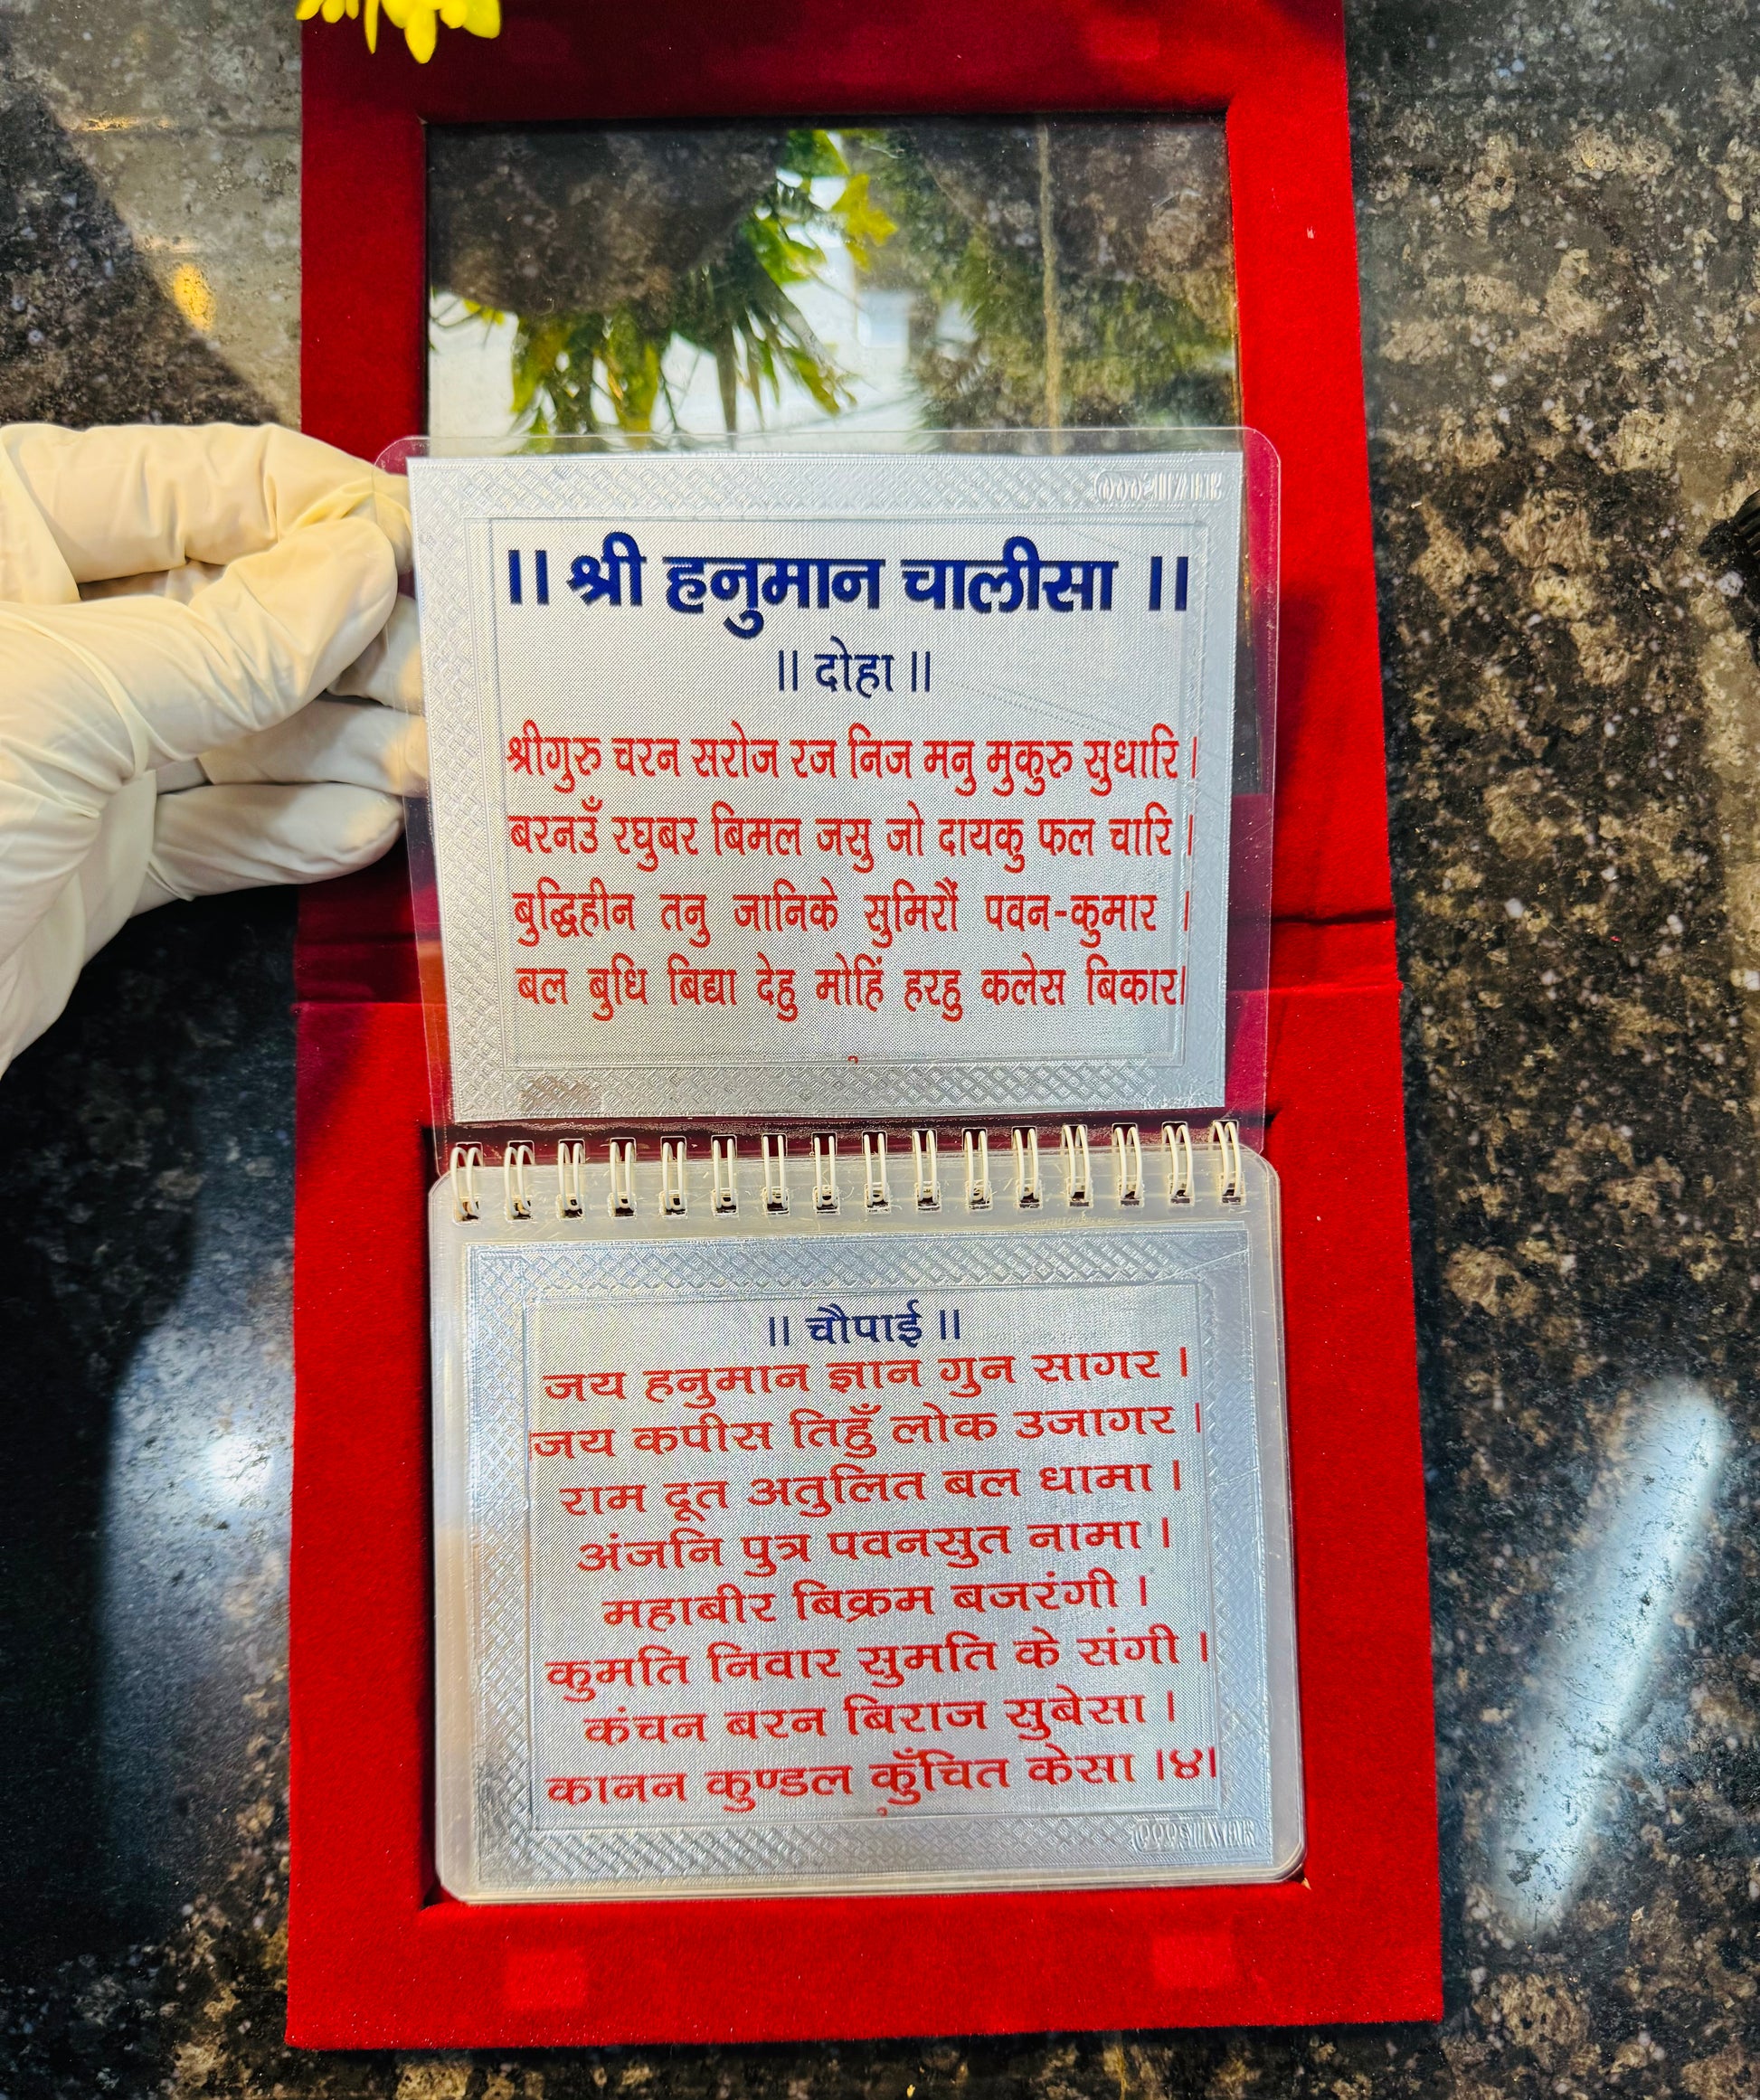 999SILVER
॥ श्री हनुमान चालीसा ॥
॥ दोहा ॥
श्रीगुरु चरन सरोज रज निज मनु मुकुरु सुधारि ।
बरनउँ रघुबर बिमल जसु जो दायकु फल चारि ।
बुद्धिहीन तनु जानिके सुमिरौं पवन-कुमार ।
बल बुधि बिद्या देहु मोहिं हरहु कलेस बिकार।
॥ चौपाई ॥
जय हनुमान ज्ञान गुन सागर ।
जय कपीस तिहुँ लोक उजागर ।
राम दूत अतुलित बल धामा ।
अंजनि पुत्र पवनसुत नामा ।
महाबीर बिक्रम बजरंगी ।
कुमति निवार सुमति के संगी ।
कंचन बरन बिराज सुबेसा ।
कानन कुण्डल कुँचित केसा ।४।
999SILVER